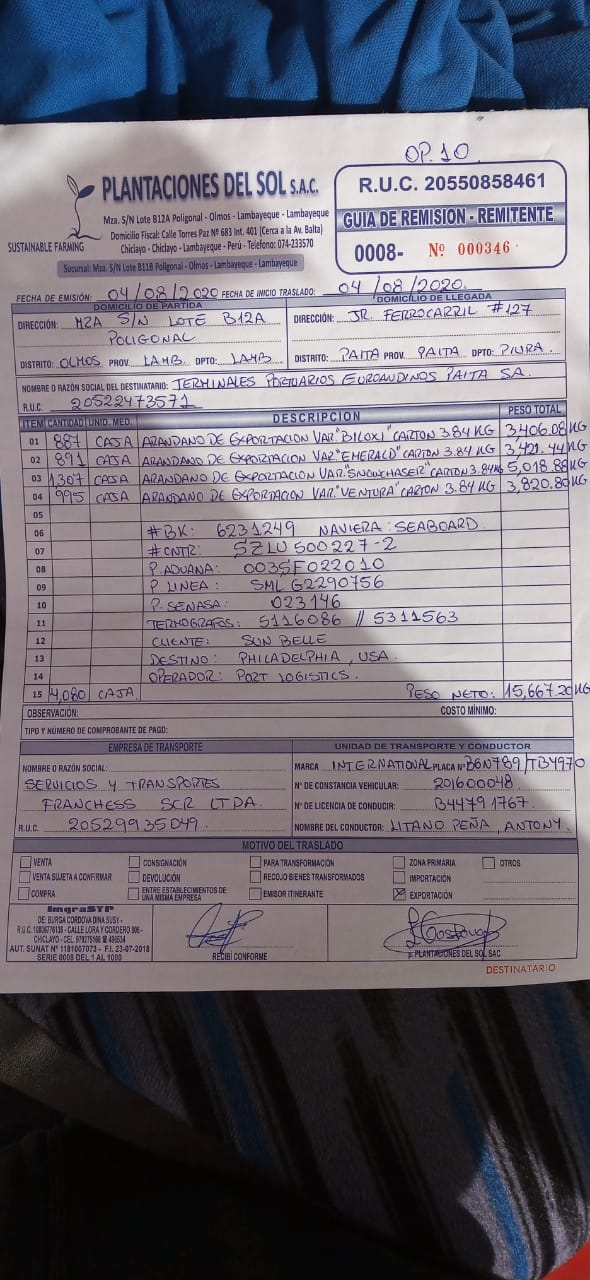 OP. 10
PLANTACIONES DEL SOL S.A.C.
Mza. S/N Lote B12A Poligonal - Olmos - Lambayeque - Lambayeque
Domicilio Fiscal: Calle Torres Paz Nº 683 Int. 401 (Cerca a la Av. Balta)
Chiclayo - Chiclayo - Lambayeque - Perú - Telefono: 074-233570
SUSTAINABLE FARMING
Sucursal: Mza. S/N Lote B11B Poligonal - Olmos - Lambayeque - Lambayeque
R.U.C. 20550858461
GUIA DE REMISION - REMITENTE
0008- Nº 000346
FECHA DE EMISIÓN: 04/08/2020 FECHA DE INICIO TRASLADO: 04/08/2020.
DOMICILIO DE PARTIDA
DIRECCIÓN: MZA S/N LOTE B12A
POLIGONAL
DISTRITO: OLMOS PROV. LAMB. DPTO: LAMB
DOMICILIO DE LLEGADA
DIRECCIÓN: JR. FERROCARRIL #127
DISTRITO: PAITA PROV. PAITA DPTO: PIURA.
NOMBRE O RAZÓN SOCIAL DEL DESTINATARIO: TERMINALES PORTUARIOS EUROANDINOS PAITA SA.
R.U.C. 20522473571
ITEM CANTIDAD UNID. MED. DESCRIPCION PESO TOTAL
01 887 CAJA ARANDANO DE EXPORTACION VAR."BILOXI" CARTON 3.84 KG 3,406.08 KG
02 891 CAJA ARANDANO DE EXPORTACION VAR."EMERALD" CARTON 3.84 KG 3,421.44 KG
03 1,307 CAJA ARANDANO DE EXPORTACION VAR."SNOWCHASER" CARTON 3.84 KG 5,018.88 KG
04 995 CAJA ARANDANO DE EXPORTACION VAR."VENTURA" CARTON 3.84 KG 3,820.80 KG
05
06 #BK: 6231249 NAVIERA: SEABOARD.
07 #CNTR: SZLU 500227-2
08 P. ADUANA: 003SF022010
09 P LINEA: SML G2290756
10 P. SENASA: 023146
11 TERMOGRAFOS: 5116086 // 5311563
12 CLIENTE: SUN BELLE
13 DESTINO: PHILADELPHIA, USA.
14 OPERADOR: PORT LOGISTICS.
15 4,080 CAJA. PESO NETO: 15,667.20 KG
OBSERVACIÓN: COSTO MÍNIMO:
TIPO Y NÚMERO DE COMPROBANTE DE PAGO:
EMPRESA DE TRANSPORTE
NOMBRE O RAZÓN SOCIAL:
SERVICIOS Y TRANSPORTES
FRANCHESS SCR LTDA.
R.U.C. 20529935049.
UNIDAD DE TRANSPORTE Y CONDUCTOR
MARCA INTERNATIONAL PLACA Nº B6N789/TB4970
N° DE CONSTANCIA VEHICULAR: 201600048.
N° DE LICENCIA DE CONDUCIR: B44791767.
NOMBRE DEL CONDUCTOR: LITANO PEÑA, ANTONY.
MOTIVO DEL TRASLADO
VENTA CONSIGNACIÓN PARA TRANSFORMACIÓN ZONA PRIMARIA OTROS
VENTA SUJETA A CONFIRMAR DEVOLUCIÓN RECOJO BIENES TRANSFORMADOS IMPORTACIÓN
COMPRA ENTRE ESTABLECIMIENTOS DE UNA MISMA EMPRESA EMISOR ITINERANTE EXPORTACIÓN
ImgraSYP
DE: BURGA CORDOVA DINA SUSY -
R.U.C. 10806776136 - CALLE LORA Y CORDERO 906 -
CHICLAYO - CEL. 979275166
AUT. SUNAT Nº 1181007073 - F.I. 23-07-2018
SERIE 0008 DEL 1 AL 1000
RECIBÍ CONFORME
p. PLANTACIONES DEL SOL SAC
DESTINATARIO